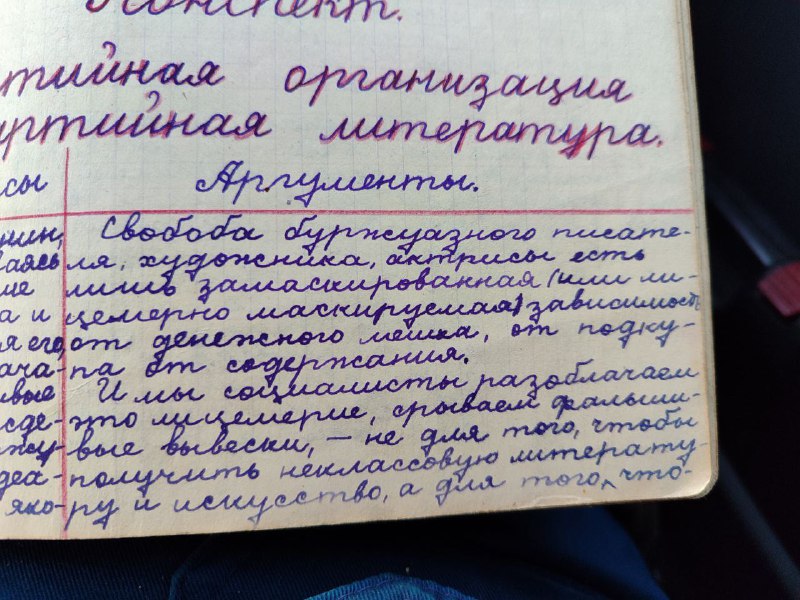 Конспект.
тийная организация
артийная литература.
сы Аргументы.
Свобода буржуазного писате-
аясь ля, художника, актрисы есть
ие лишь замаскированная (или ли-
а и цемерно маскируемая) зависимость
я его, от денежного мешка, от подку-
ача- па от содержания.
ивые И мы социалисты разоблачаем
сде- это лицемерие, срываем фальши-
вые вывески, – не для того, чтобы
деа- получить неклассовую литерату-
яко- ру и искусство, а для того, что-